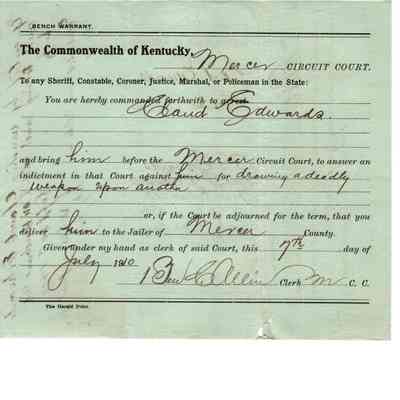 BENCH WARRANT.
The Commonwealth of Kentucky, Mercer CIRCUIT COURT.
To any Sheriff, Constable, Coroner, Justice, Marshal, or Policeman in the State:
You are hereby commanded forthwith to arrest
Claud Edwards.
and bring him before the Mercer Circuit Court, to answer an
indictment in that Court against him for drawing a deadly
weapon upon another
or, if the Court be adjourned for the term, that you
deliver him to the Jailer of Mercer County.
Given under my hand as clerk of said Court, this 7th day of
July 1910
Ben C Allin Clerk M C. C.
The Herald Print.